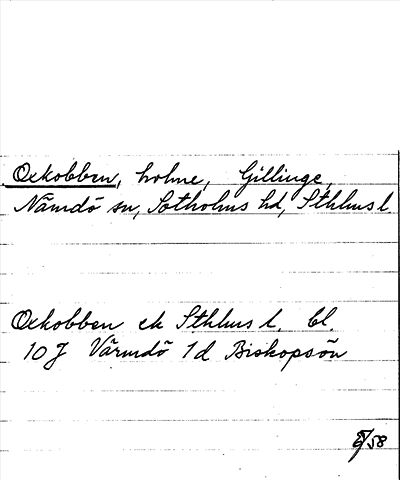 Oxkobben, holme, Gillinge,
Nämdö sn, Sotholms hd, Sthlms l.
Oxkobben ek Sthlms l. bl.
10 J Värmdö 1 d Biskopsön
/58